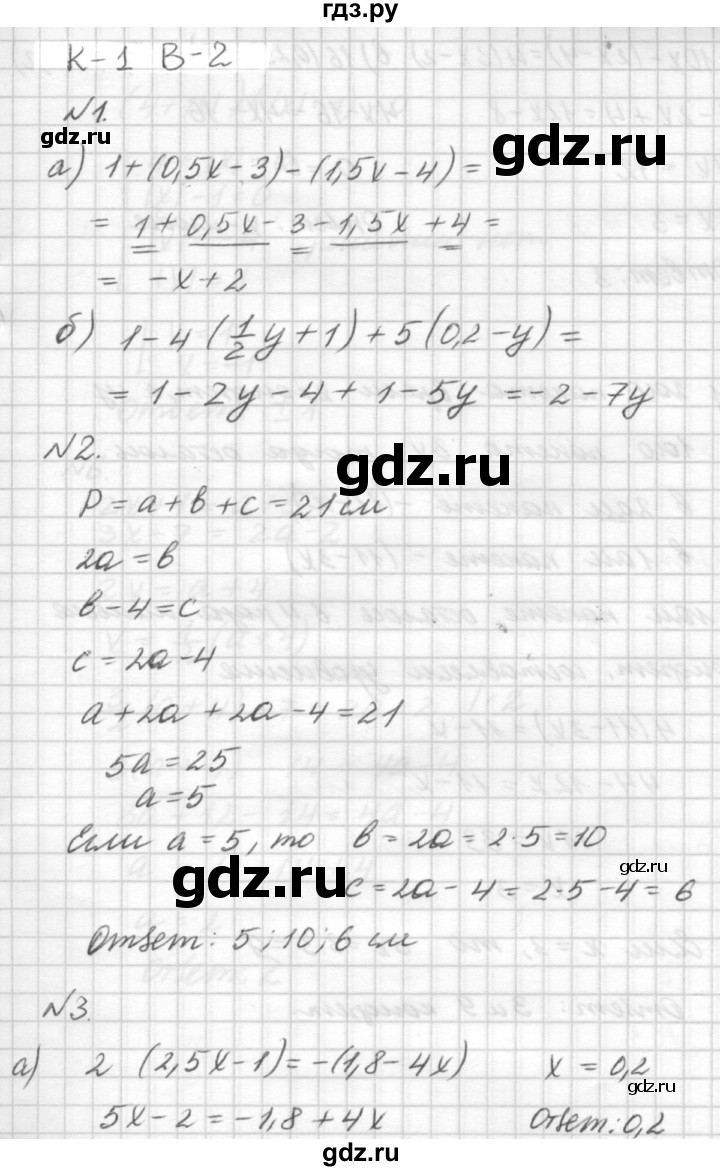 гдз.ру
К-1 В-2
№1.
gdz.ru
gdz.ru
а) 1+(0,5x-3)-(1,5x-4)=
= 1+0,5x-3-1,5x+4=
= -x+2
б) 1-4(1/2y+1)+5(0,2-y)=
= 1-2y-4+1-5y=-2-7y
№2.
gdz.ru
P=a+в+c=21см
2a=в
в-4=c
c=2a-4
a+2a+2a-4=21
5a=25
a=5
Если a=5, то в=2a=2·5=10
gdz.ru
gdz.ru
c=2a-4=2·5-4=6
Ответ: 5;10;6 см
№3.
а) 2 (2,5x-1)=-(1,8-4x) x=0,2
gdz.ru
5x-2=-1,8+4x Ответ:0,2
gdz.ru